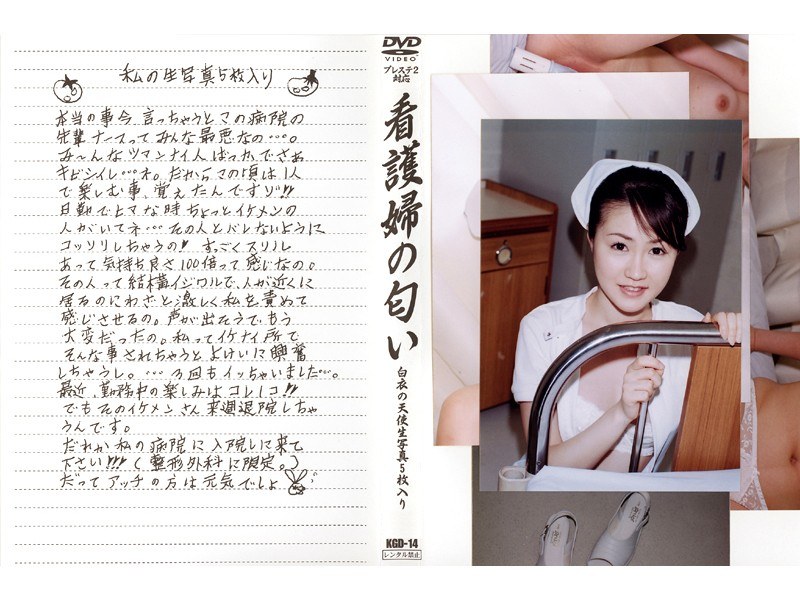 私の生写真5枚入り
本当の事今、言っちゃうとこの病院の
先輩ナースってみんな最悪なの…。
み〜んなツマンナイ人ばっかでさぁ
キビシイし…ネ。だからこの頃は1人
で楽しむ事、覚えたんですゾ!!
日勤でヒマな時ちょっとイケメンの
人がいてネ…その人とバレないように
コッソリしちゃうの!! すっごくスリルし
あって気持ち良さ100倍って感じなの。
その人って結構イジワルで、人が近くに
居るのにわざと激しく私を責めて
感じさせるの。声が出そうでもう
大変だったの。私ってイケナイ所で
そんな事されちゃうとよけいに興奮
しちゃうし。…3回もイッちゃいました…。
最近、勤務中の楽しみはコレ1コ!!
でもそのイケメンさん来週退院しちゃ
うんです。
だれか私の病院に入院しに来て
下さい!!!(整形外科に限定。)
だってアッチの方は元気でしょ
DVD
VIDEO
プレステ2
対応
看護婦の匂い
白衣の天使生写真5枚入り
KGD-14
レンタル禁止